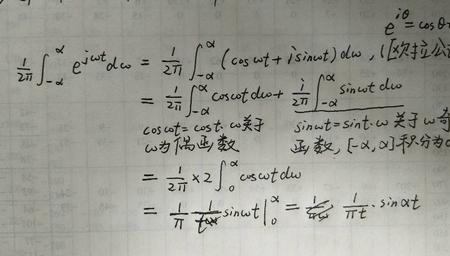 e^{iθ} = cosθ
\frac{1}{2π}∫_{-α}^{α} e^{jωt}dω = \frac{1}{2π}∫_{-α}^{α} (cosωt + i sinωt) dω, (欧拉公
= \frac{1}{2π}∫_{-α}^{α} cosωt dω + \frac{i}{2π}∫_{-α}^{α} sinωt dω
cosωt = cost·ω 关于 sinωt = sint·ω 关于 ω 奇
ω为偶函数 函数, [-α,α] 积分为
= \frac{1}{2π} × 2∫_{0}^{α} cosωt dω
= \frac{1}{π} \frac{1}{t} sinωt |_{0}^{α} = \frac{1}{πt}·sinαt